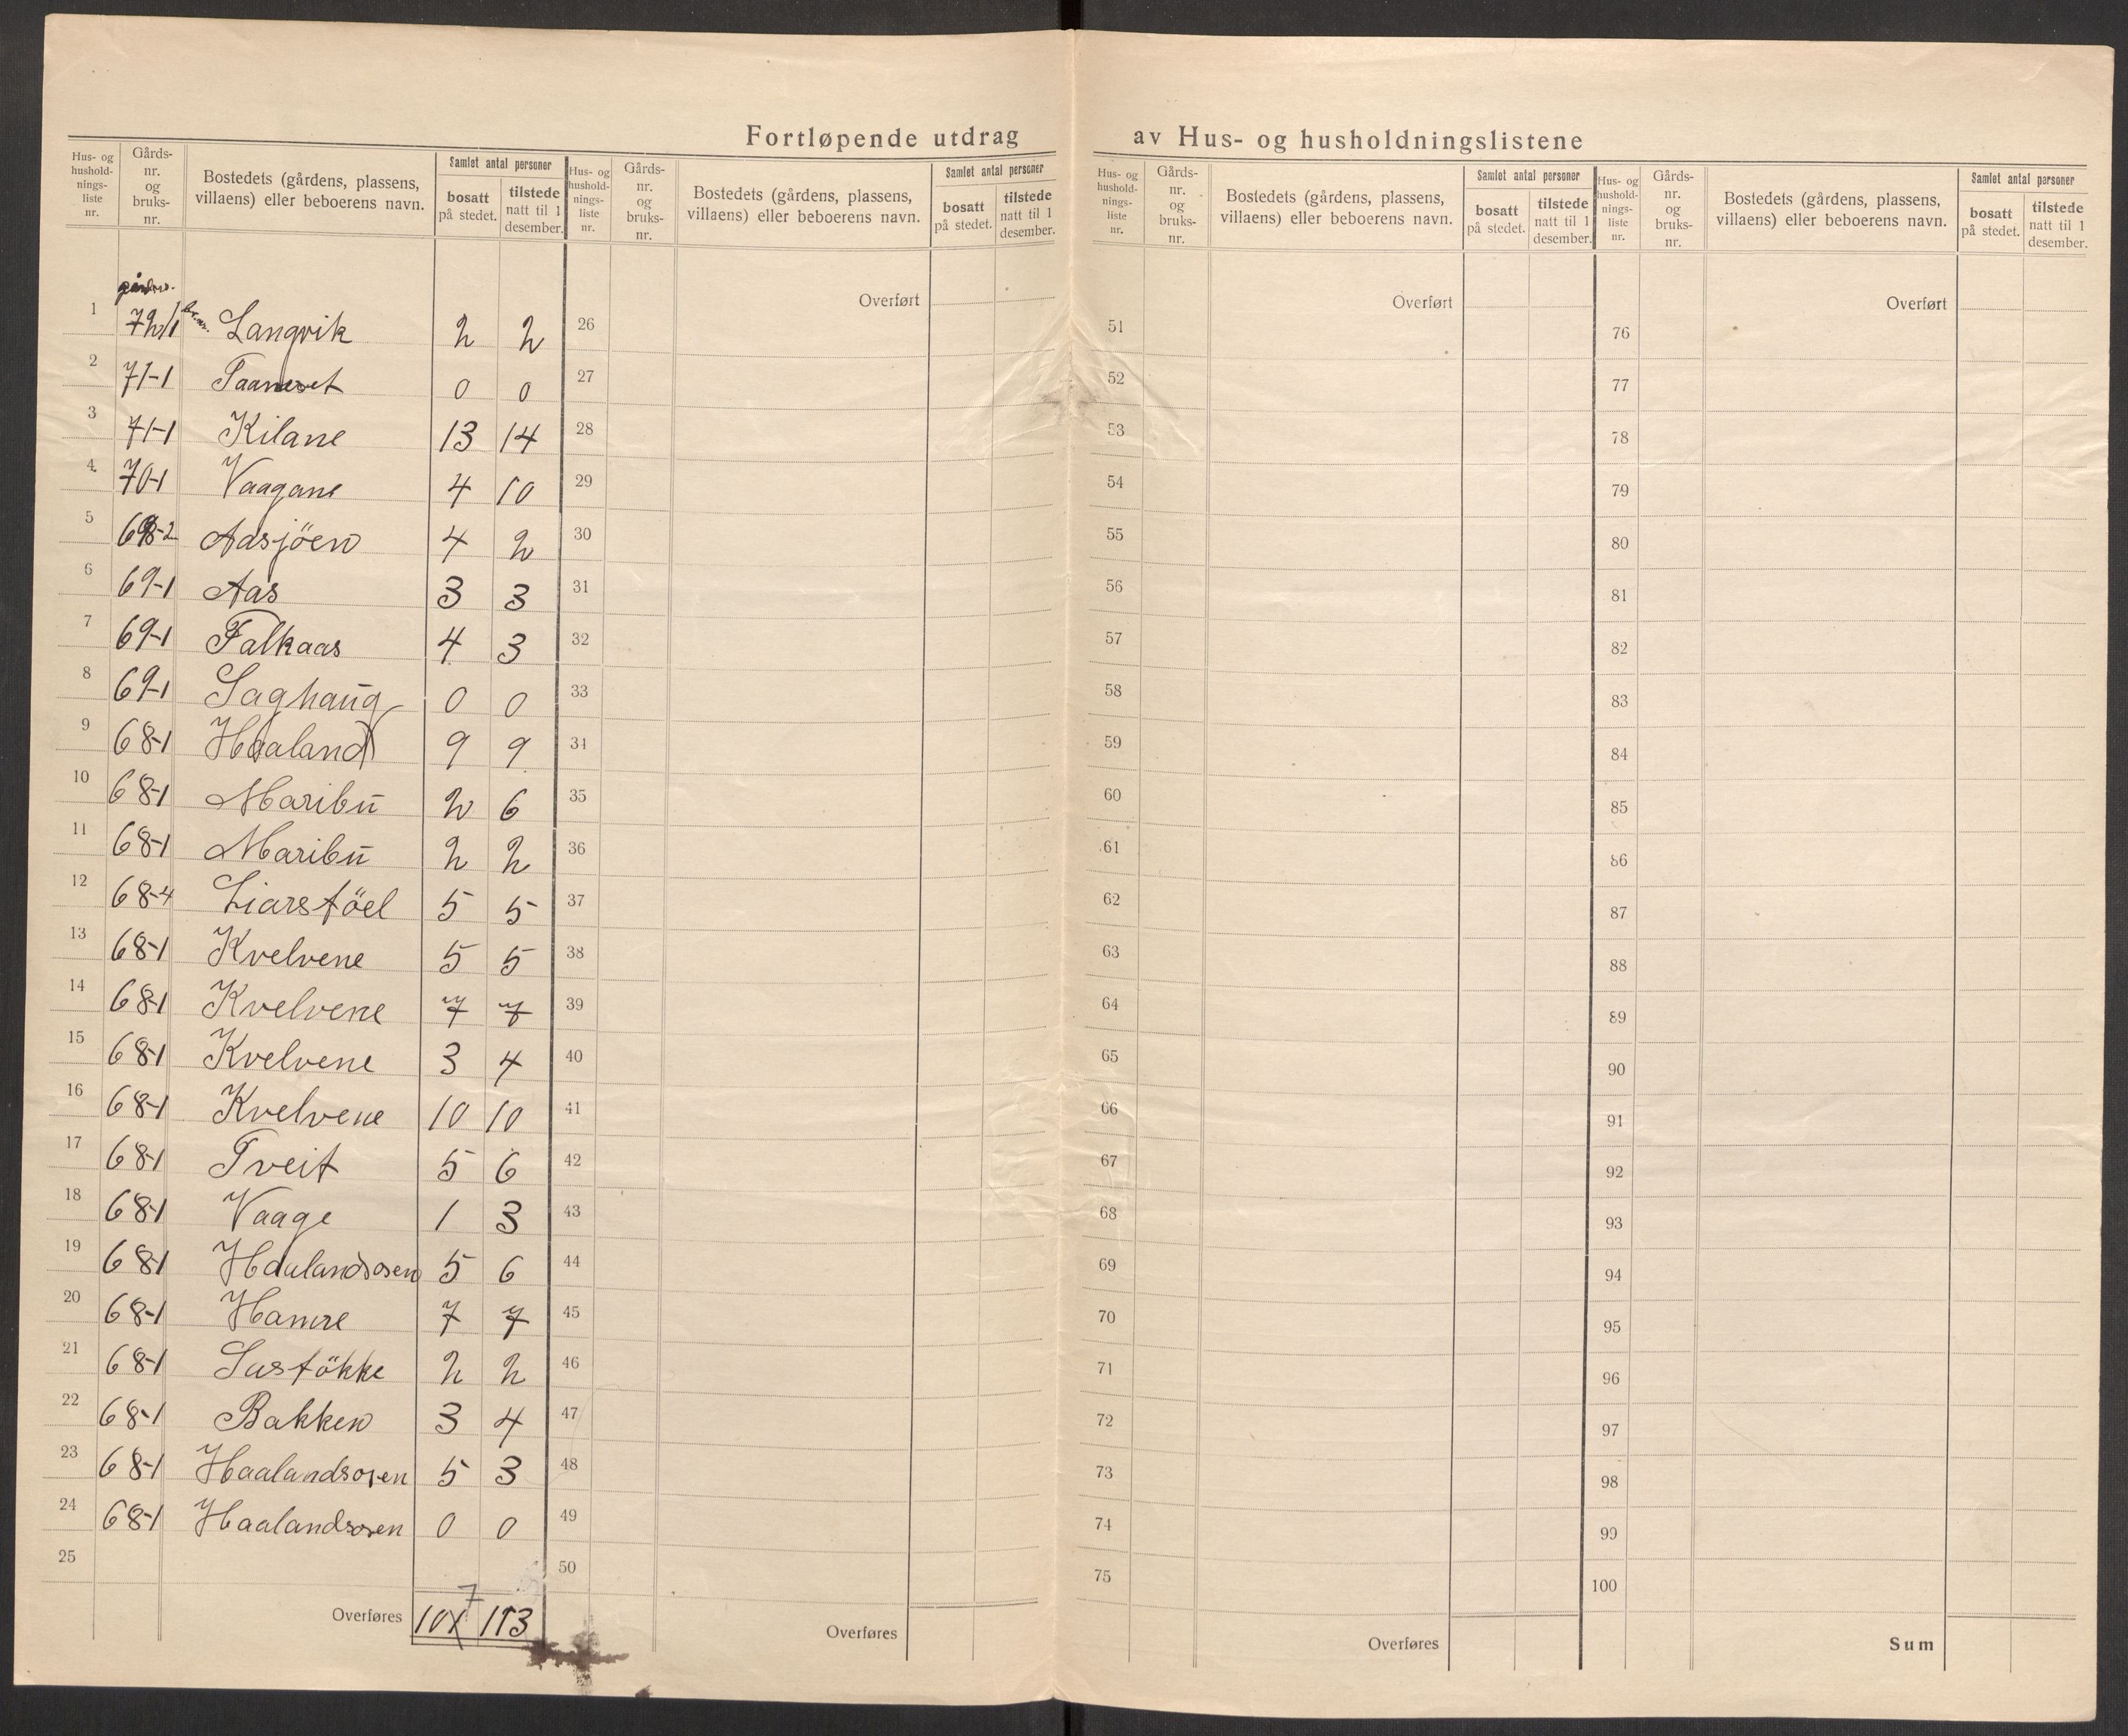 Fortløpende utdrag av Hus- og husholdningslistene
Hus- og hushold- nings- liste nr. Gårds- nr. og bruks- nr. Bostedets (gårdens, plassens, villaens) eller beboerens navn. Samlet antal personer bosatt på stedet. tilstede natt til 1 desember.
gårdsnr. br.nr.
1 72/1 Langvik 2 2
2 71-1 0 0
3 71-1 Kilane 13 14
4 70-1 Vaagane 4 10
5 68-2 Aasjöen 4 2
6 69-1 Aas 3 3
7 69-1 Falkaas 4 3
8 69-1 Saghaug 0 0
9 68-1 Haaland 9 9
10 68-1 Maribu 2 6
11 68-1 Maribu 2 2
12 68-4 Liarstöel 5 5
13 68-1 Kvelvene 5 5
14 68-1 Kvelvene 7 7
15 68-1 Kvelvene 3 4
16 68-1 Kvelvene 10 10
17 68-1 Tveit 5 6
18 68-1 Vaage 1 3
19 68-1 Haalandsosen 5 6
20 68-1 Hamre 7 7
21 68-1 Sustökke 2 2
22 68-1 Bakken 3 4
23 68-1 Haalandsosen 5 3
24 68-1 Haalandsosen 0 0
25
Overføres 107 113
Hus- og hushold- nings- liste nr. Gårds- nr. og bruks- nr. Bostedets (gårdens, plassens, villaens) eller beboerens navn. Samlet antal personer bosatt på stedet. tilstede natt til 1 desember.
Overført
26
27
28
29
30
31
32
33
34
35
36
37
38
39
40
41
42
43
44
45
46
47
48
49
50
Overføres
Hus- og hushold- nings- liste nr. Gårds- nr. og bruks- nr. Bostedets (gårdens, plassens, villaens) eller beboerens navn. Samlet antal personer bosatt på stedet. tilstede natt til 1 desember.
Overført
51
52
53
54
55
56
57
58
59
60
61
62
63
64
65
66
67
68
69
70
71
72
73
74
75
Overføres
Hus- og hushold- nings- liste nr. Gårds- nr. og bruks- nr. Bostedets (gårdens, plassens, villaens) eller beboerens navn. Samlet antal personer bosatt på stedet. tilstede natt til 1 desember.
Overført
76
77
78
79
80
81
82
83
84
85
86
87
88
89
90
91
92
93
94
95
96
97
98
99
100
Sum